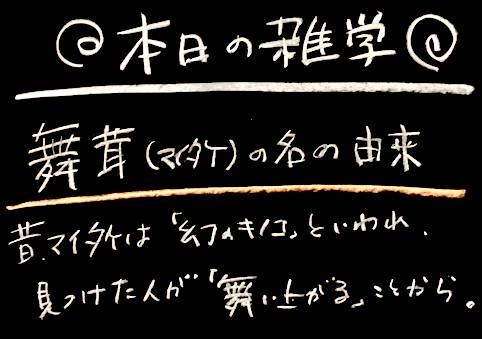 本日の雑学
舞茸(マイタケ)の名の由来
昔、マイタケは「幻のキノコ」といわれ、
見つけた人が「舞い上がる」ことから。